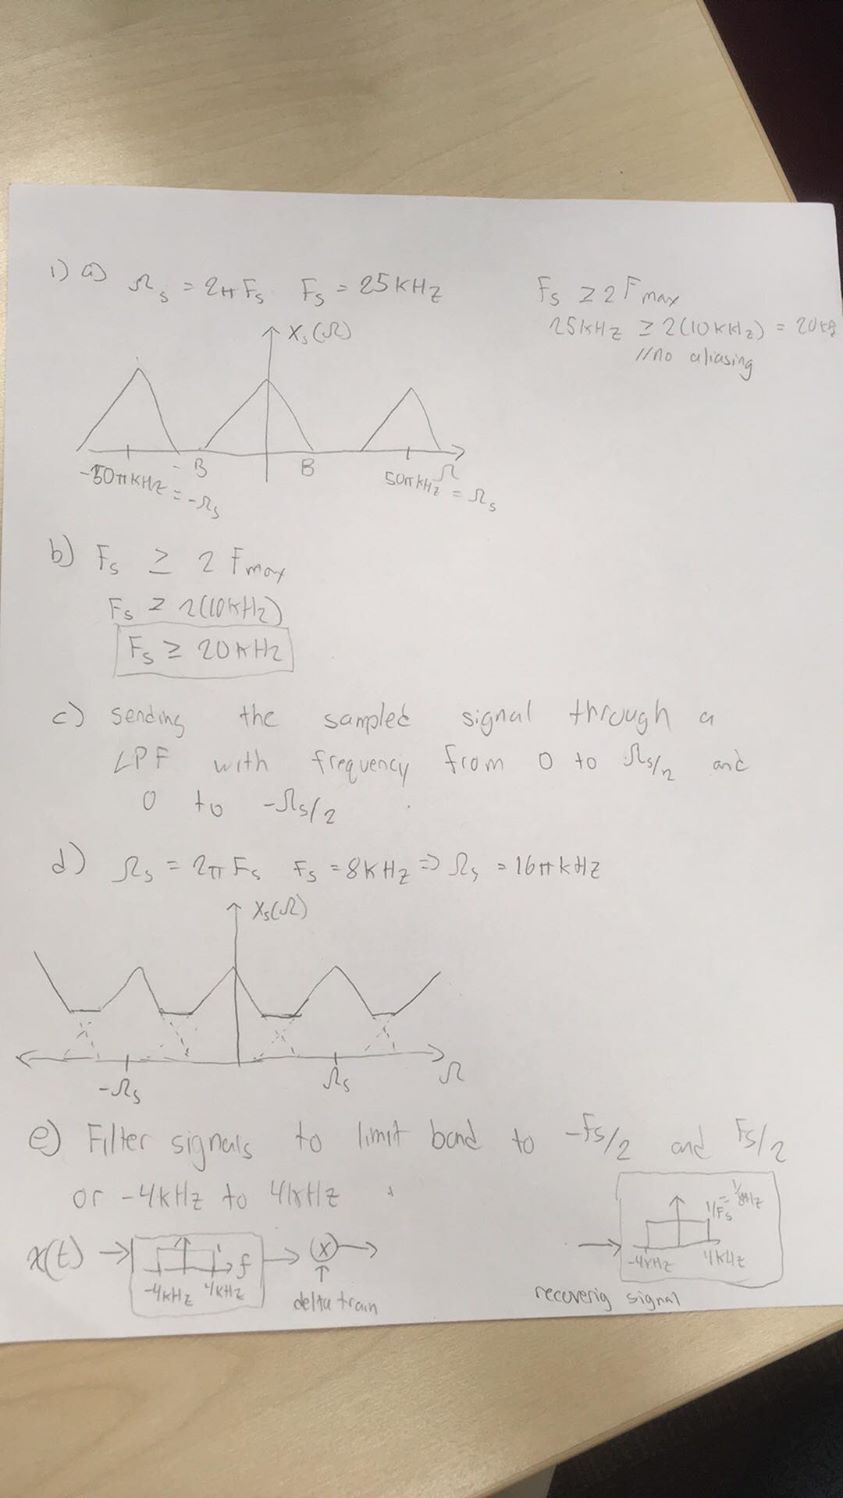 1) a) Ωs = 2πFs Fs = 25kHz
Fs ≥ 2Fmax
25kHz ≥ 2(10kHz) = 20k
//no aliasing
Xs(Ω)
-50πkHz = -Ωs
-B
B
50πkHz = Ωs
Ω
b) Fs ≥ 2 Fmax
Fs ≥ 2(10kHz)
Fs ≥ 20kHz
c) sending the sampled signal through a
LPF with frequency from 0 to Ωs/2 and
0 to -Ωs/2
d) Ωs = 2πFs Fs = 8kHz => Ωs = 16πkHz
Xs(Ω)
-Ωs
Ωs
Ω
e) Filter signals to limit band to -Fs/2 and Fs/2
or -4kHz to 4kHz
x(t)
1
f
-4kHz 4kHz
(x)
delta train
1/Fs = 1/8kHz
-4kHz
4kHz
recoverig signal